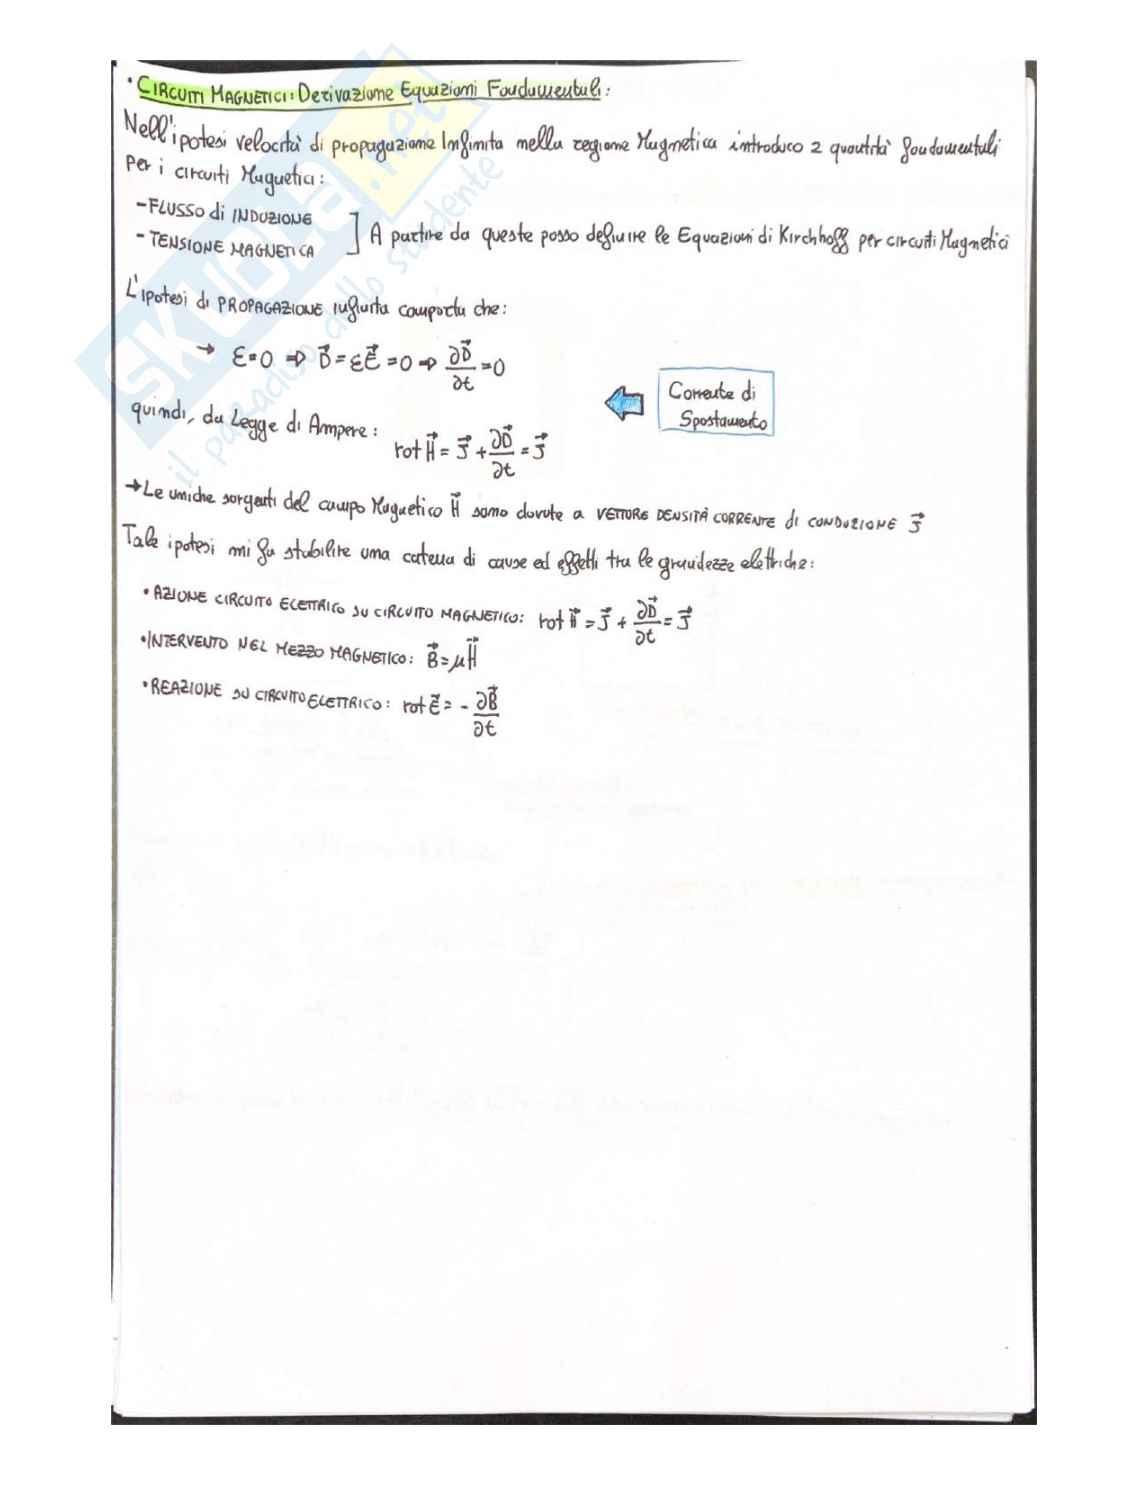 • CIRCUITI MAGNETICI: Derivazione Equazioni Fondamentali:
Nell'ipotesi velocità di propagazione Infinita nella regione Magnetica introduco 2 quantità fondamentali
Per i circuiti Magnetici:
- FLUSSO di INDUZIONE
- TENSIONE MAGNETICA
] A partire da queste posso definire le Equazioni di Kirchhoff per circuiti Magnetici
L'ipotesi di PROPAGAZIONE infinita comporta che:
→ ε=0 ⇒ D⃗ = εE⃗ = 0 ⇒ ∂D⃗/∂t = 0
Corrente di
Spostamento
quindi, da Legge di Ampere:
rot H⃗ = J⃗ + ∂D⃗/∂t = J⃗
→ Le uniche sorgenti del campo Magnetico H⃗ sono dovute a VETTORE DENSITÀ CORRENTE di CONDUZIONE J⃗
Tale ipotesi mi fa stabilire una catena di cause ed effetti tra le grandezze elettriche:
• AZIONE CIRCUITO ELETTRICO SU CIRCUITO MAGNETICO: rot H⃗ = J⃗ + ∂D⃗/∂t = J⃗
• INTERVENTO NEL MEZZO MAGNETICO: B⃗ = μH⃗
• REAZIONE SU CIRCUITO ELETTRICO: rot E⃗ = - ∂B⃗/∂t
SKUOLA.net
il paradiso dello studente